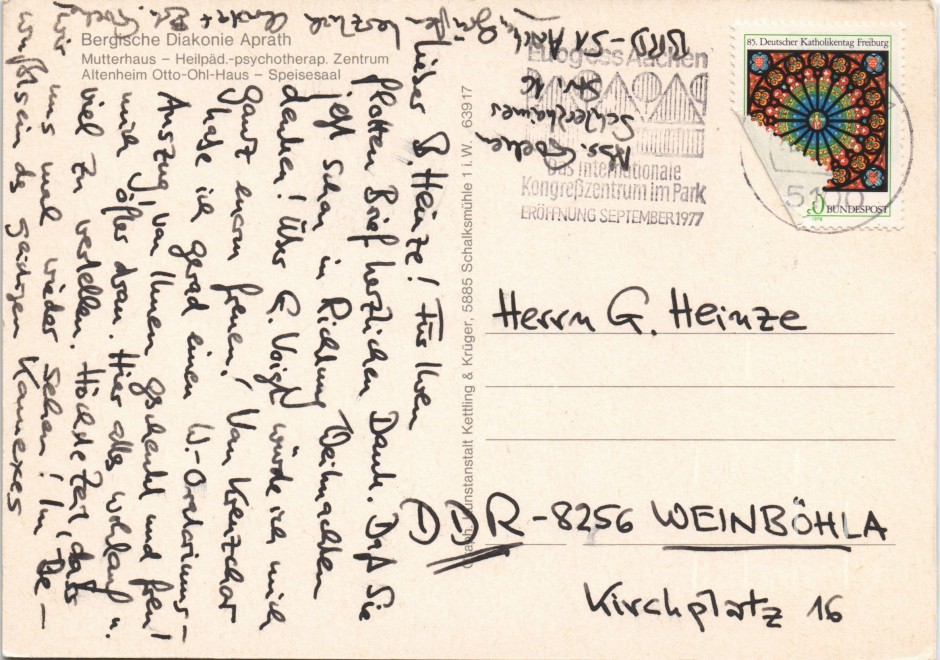 Bergische Diakonie Aprath
Mutterhaus – Heilpäd.-psychotherap. Zentrum
Altenheim Otto-Ohl-Haus – Speisesaal
Lieber B. Heinze! Für Ihren
flotten Brief herzlichen Dank. Daß Sie
jetzt schon in Richtung Weihnachten
denken! Über G. Voigt würde ich mich
ganz enorm freuen! Von Kreuzchor
habe ich gerad einen W.-Oratoriums-
Auszug von Ihnen geschenkt und freu
mich öfter dran. Hier alles wohlauf u.
viel zu vertellen. Höchste Zeit, daß
wir uns mal wieder sehen! Im Be-
wußtsein des gaidigen Kamexes
herzlich
Grüßen
Graph. Kunstanstalt Kettling & Krüger, 5885 Schalksmühle 1 i. W. 63917
Abs. Goeken
Schlerzheimer
Str. 16
BRD-51 Aach.
Eurogress Aachen
Das internationale
Kongreßzentrum im Park
ERÖFFNUNG SEPTEMBER 1977
85. Deutscher Katholikentag Freiburg
DEUTSCHE BUNDESPOST
5100
Herrn G. Heinze
DDR-8256 WEINBÖHLA
Kirchplatz 16